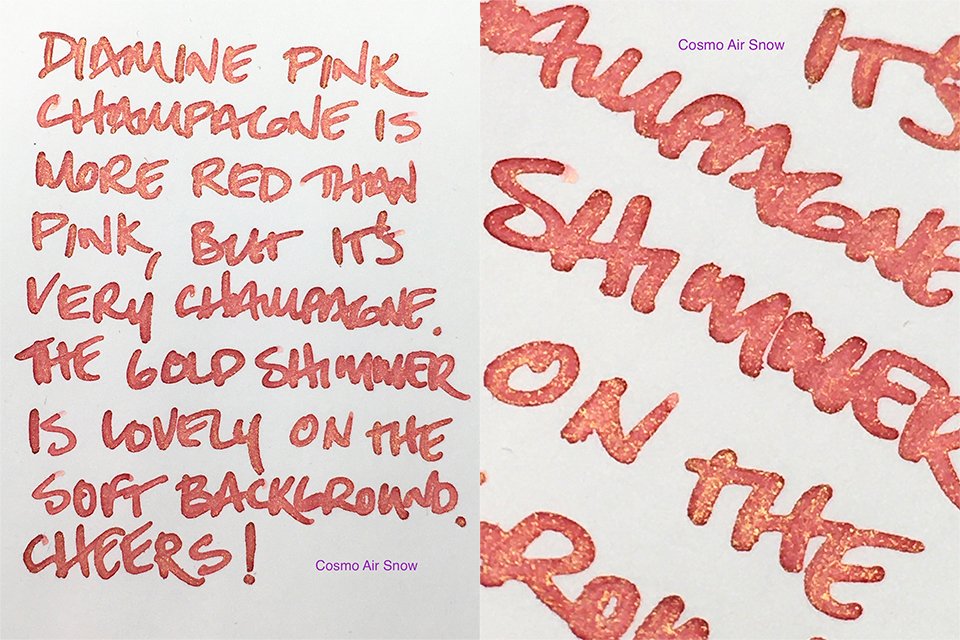 DIAMINE PINK
CHAMPAGNE IS
MORE RED THAN
PINK, BUT IT'S
VERY CHAMPAGNE.
THE GOLD SHIMMER
IS LOVELY ON THE
SOFT BACKGROUND.
CHEERS!
Cosmo Air Snow
Cosmo Air Snow
IT'S
AMPAGNE
SHIMMER
ON THE
ROUN